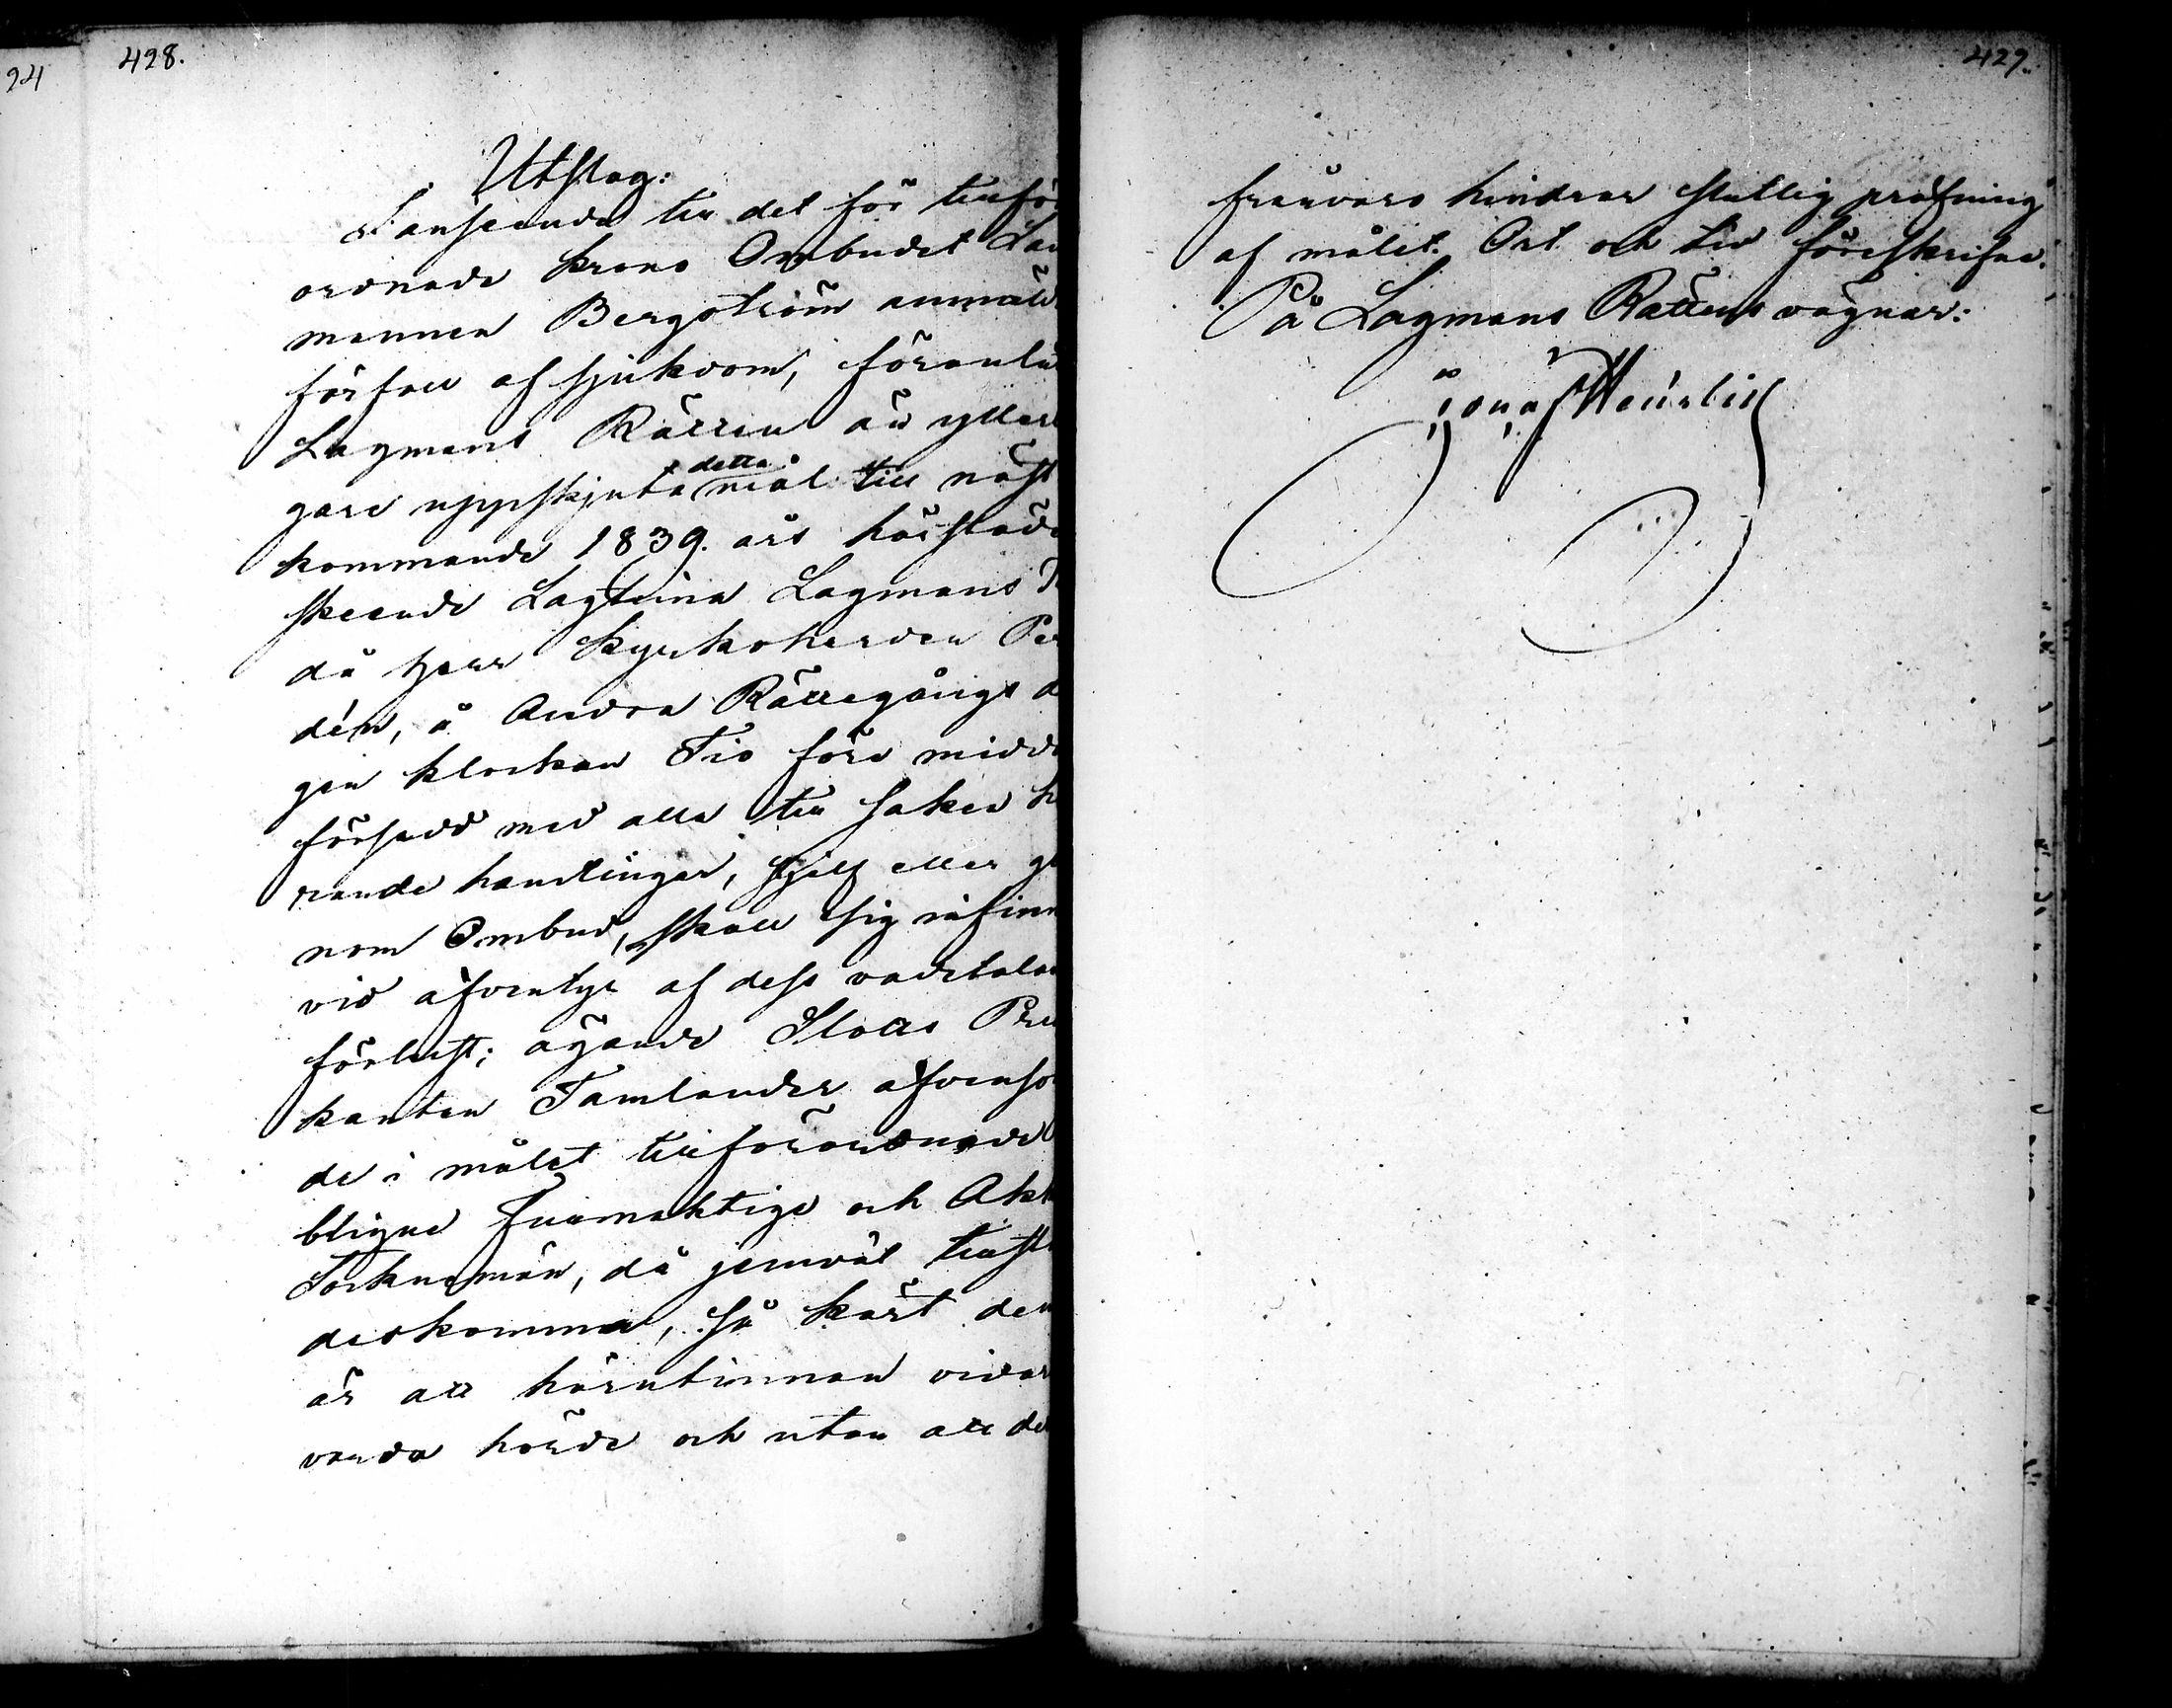 24
428.
Utslag:
I anseende till det för tillför
ordnade Krono Ombudet Län
mannen Bergström anmäld
förfall af sjukdom, föranlå
Lagmans Rätten än ytterl
gare uppskjuta detta mål till näst
kommande 1839. års härstäde
skeende Lagtima Lagmans T
då Herr Kyrkoherden Per
dén, å Andra Rättegångs da
gen klockan Tio före midda
försedd med alla till saken hö
rande handlingar, sjelf eller ge
nom Ombud, skall sig infinn
vid äfventyr af dess vadetalan
förlust; ägande Slotts Predi
kanten Tamlander äfvenso
de i målet tillförordnade
bligne fullmäktige och Akt
Socknemän, då jemväl tillst
deskomma, så kärt dem
är att härutinnan vidar
varda hörde och utan att de
429.
frånvaro hindrar slutlig pröfning
af målet. Ort och tid föreskrifne.
På Lagmans Rättens vägnar: